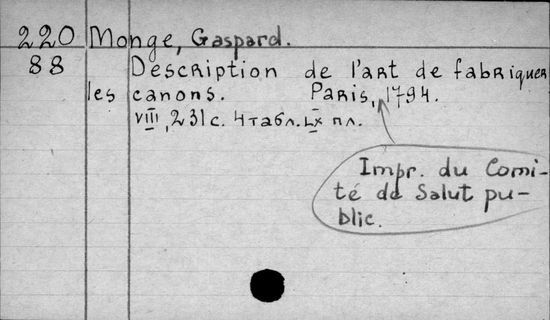 220 Monge, Gaspard.
88 Description de l'art de fabriquer
les canons. Paris, 1794.
VIII, 231 с. 4 табл. LX пл.
Impr. du Comi-
té de Salut pu-
blic.